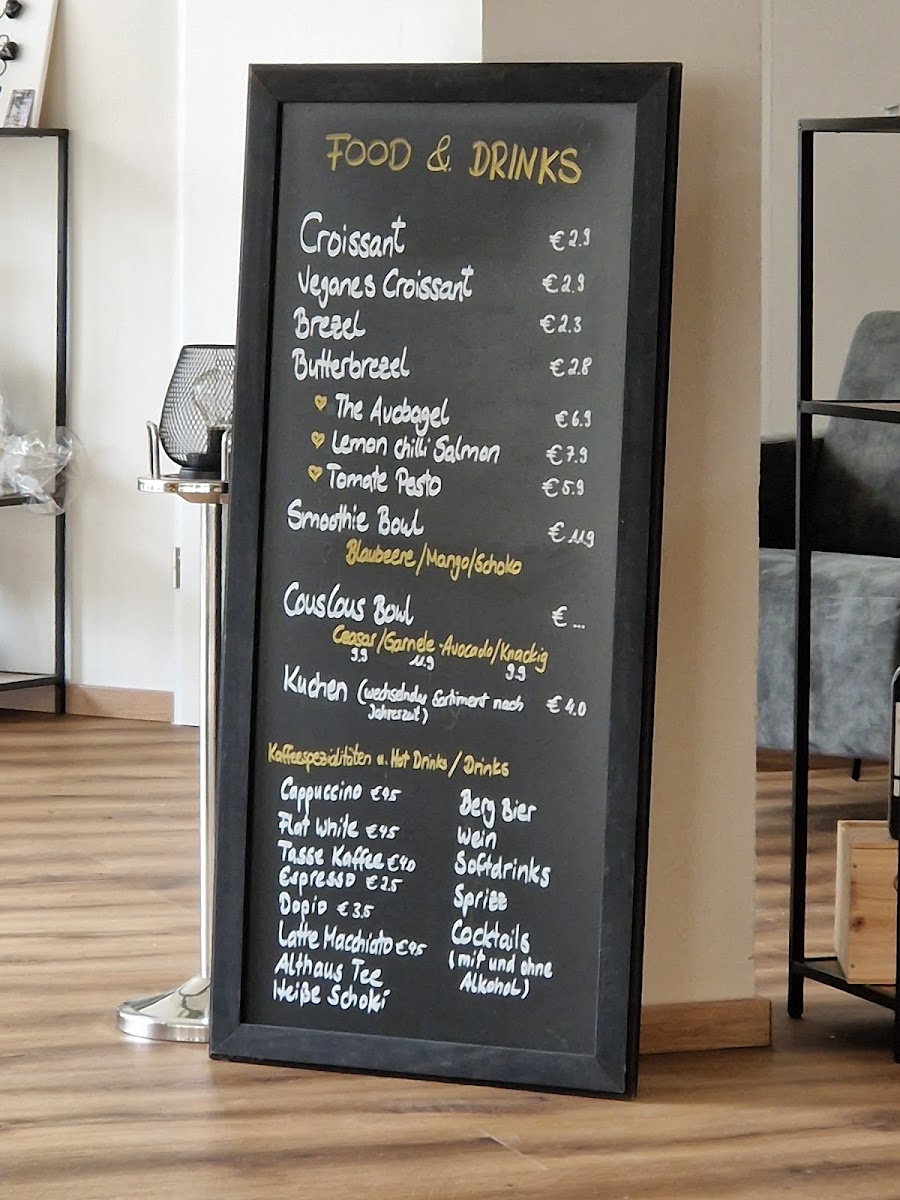 FOOD & DRINKS
Croissant €2.9
Veganes Croissant €2.9
Brezel €2.3
Butterbrezel €2.8
The Avobagel €6.9
Lemon chilli Salmon €7.9
Tomate Pesto €5.9
Smoothie Bowl €11.9
Blaubeere/Mango/Schoko
CousCous Bowl € ...
Ceasar/Garnele-Avocado/Knackig
9.9 11.9 9.9
Kuchen (wechselndes Sortiment nach €4.0
Jahreszeit)
Kaffeespezialitäten u. Hot Drinks/Drinks
Cappuccino €4.5
Flat White €4.5
Tasse Kaffee €4.0
Espresso €2.5
Dopio €3.5
Latte Macchiato €4.5
Althaus Tee
Heiße Schoki
Berg Bier
Wein
Softdrinks
Sprizz
Cocktails
(mit und ohne
Alkohol)